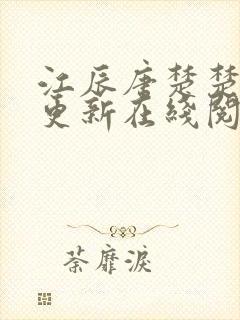 江辰唐楚楚
更新在线阅
荼靡淚